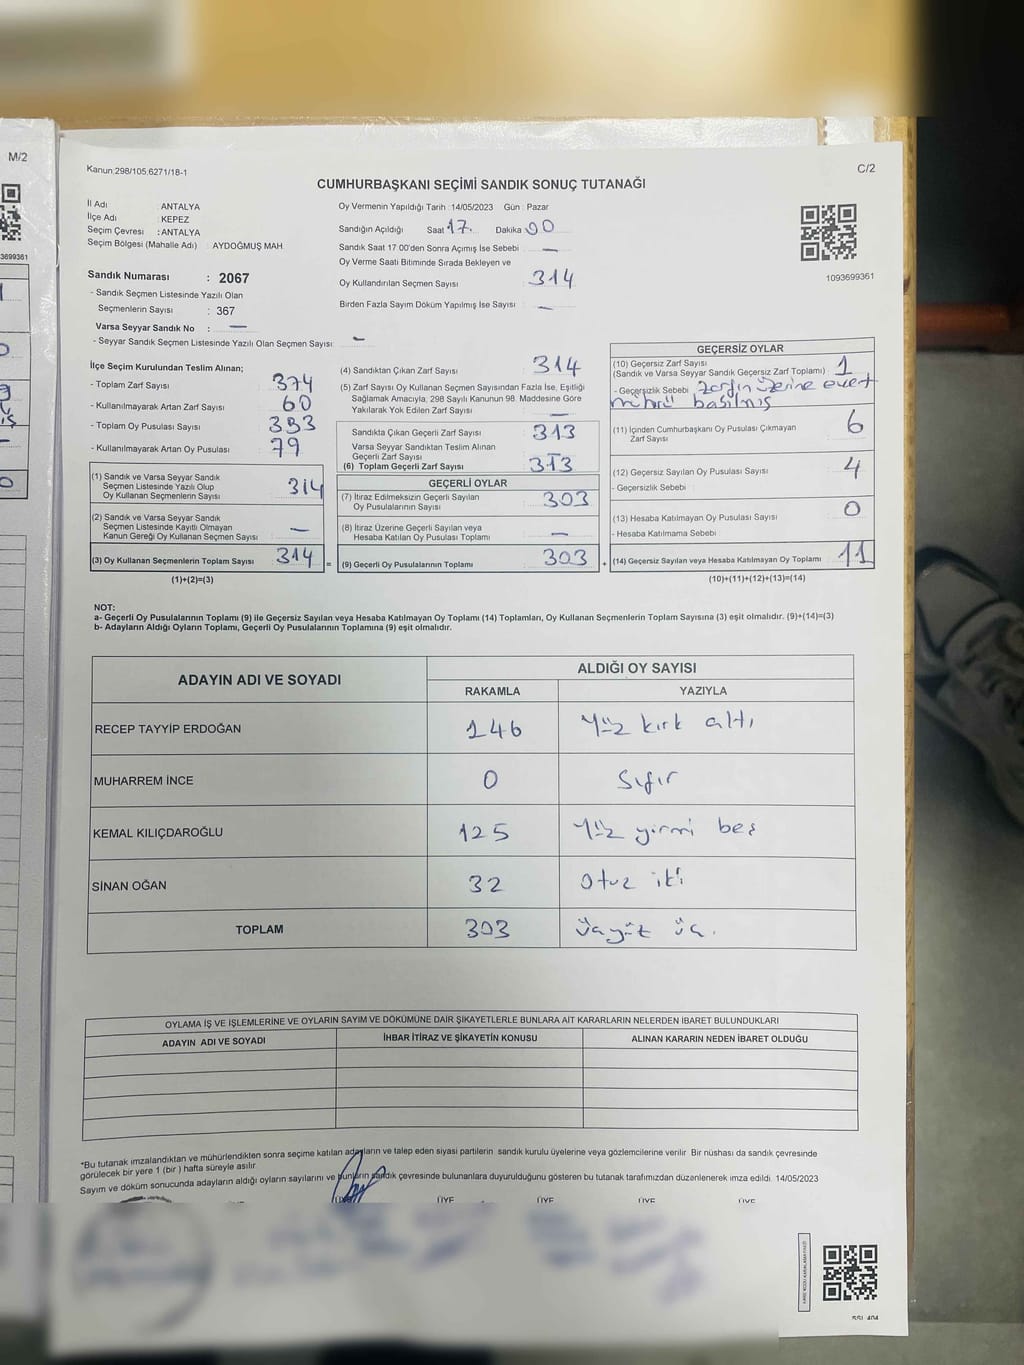 M/2
3699361
Kanun,298/105,6271/18-1
C/2
CUMHURBAŞKANI SEÇİMİ SANDIK SONUÇ TUTANAĞI
1093699361
İl Adı : ANTALYA
İlçe Adı : KEPEZ
Seçim Çevresi : ANTALYA
Seçim Bölgesi (Mahalle Adı) : AYDOĞMUŞ MAH
Sandık Numarası : 2067
- Sandık Seçmen Listesinde Yazılı Olan
Seçmenlerin Sayısı : 367
Varsa Seyyar Sandık No : —
- Seyyar Sandık Seçmen Listesinde Yazılı Olan Seçmen Sayısı: —
Oy Vermenin Yapıldığı Tarih :14/05/2023 Gün : Pazar
Sandığın Açıldığı Saat 17. Dakika 00
Sandık Saat 17.00'den Sonra Açımış İse Sebebi —
Oy Verme Saati Bitiminde Sırada Bekleyen ve
Oy Kullandırılan Seçmen Sayısı : 314
Birden Fazla Sayım Döküm Yapılmış İse Sayısı : —
İlçe Seçim Kurulundan Teslim Alınan;
- Toplam Zarf Sayısı : 374
- Kullanılmayarak Artan Zarf Sayısı : 60
- Toplam Oy Pusulası Sayısı : 383
- Kullanılmayarak Artan Oy Pusulası : 79
(1) Sandık ve Varsa Seyyar Sandık
Seçmen Listesinde Yazılı Olup
Oy Kullanan Seçmenlerin Sayısı : 314
(2) Sandık ve Varsa Seyyar Sandık
Seçmen Listesinde Kayıtlı Olmayan
Kanun Gereği Oy Kullanan Seçmen Sayısı : —
(3) Oy Kullanan Seçmenlerin Toplam Sayısı : 314
(1)+(2)=(3)
(4) Sandıktan Çıkan Zarf Sayısı : 314
(5) Zarf Sayısı Oy Kullanan Seçmen Sayısından Fazla İse, Eşitliği
Sağlamak Amacıyla, 298 Sayılı Kanunun 98. Maddesine Göre
Yakılarak Yok Edilen Zarf Sayısı : —
Sandıkta Çıkan Geçerli Zarf Sayısı : 313
Varsa Seyyar Sandıktan Teslim Alınan
Geçerli Zarf Sayısı : —
(6) Toplam Geçerli Zarf Sayısı : 313
GEÇERLİ OYLAR
(7) İtiraz Edilmeksizin Geçerli Sayılan
Oy Pusulalarının Sayısı : 303
(8) İtiraz Üzerine Geçerli Sayılan veya
Hesaba Katılan Oy Pusulası Toplamı : —
= (9) Geçerli Oy Pusulalarının Toplamı : 303
GEÇERSİZ OYLAR
(10) Geçersiz Zarf Sayısı
(Sandık ve Varsa Seyyar Sandık Geçersiz Zarf Toplamı) : 1
- Geçersizlik Sebebi : Zarfın üzerine evet
mührü basılmış
(11) İçinden Cumhurbaşkanı Oy Pusulası Çıkmayan
Zarf Sayısı : 6
(12) Geçersiz Sayılan Oy Pusulası Sayısı : 4
- Geçersizlik Sebebi :
(13) Hesaba Katılmayan Oy Pusulası Sayısı : 0
- Hesaba Katılmama Sebebi :
+ (14) Geçersiz Sayılan veya Hesaba Katılmayan Oy Toplamı : 11
(10)+(11)+(12)+(13)=(14)
NOT:
a- Geçerli Oy Pusulalarının Toplamı (9) ile Geçersiz Sayılan veya Hesaba Katılmayan Oy Toplamı (14) Toplamları, Oy Kullanan Seçmenlerin Toplam Sayısına (3) eşit olmalıdır. (9)+(14)=(3)
b- Adayların Aldığı Oyların Toplamı, Geçerli Oy Pusulalarının Toplamına (9) eşit olmalıdır.
ADAYIN ADI VE SOYADI ALDIĞI OY SAYISI
RAKAMLA YAZIYLA
RECEP TAYYİP ERDOĞAN 146 Yüz kırk altı
MUHARREM İNCE 0 Sıfır
KEMAL KILIÇDAROĞLU 125 Yüz yirmi beş
SİNAN OĞAN 32 Otuz iki
TOPLAM 303 üçyüz üç.
OYLAMA İŞ VE İŞLEMLERİNE VE OYLARIN SAYIM VE DÖKÜMÜNE DAİR ŞİKAYETLERLE BUNLARA AİT KARARLARIN NELERDEN İBARET BULUNDUKLARI
ADAYIN ADI VE SOYADI İHBAR İTİRAZ VE ŞİKAYETİN KONUSU ALINAN KARARIN NEDEN İBARET OLDUĞU
*Bu tutanak imzalandıktan ve mühürlendikten sonra seçime katılan adayların ve talep eden siyasi partilerin sandık kurulu üyelerine veya gözlemcilerine verilir. Bir nüshası da sandık çevresinde
görülecek bir yere 1 (bir ) hafta süreyle asılır.
Sayım ve döküm sonucunda adayların aldığı oyların sayılarını ve bunların sandık çevresinde bulunanlara duyurulduğunu gösteren bu tutanak tarafımızdan düzenlenerek imza edildi. 14/05/2023
ÜYE ÜYE ÜYE ÜYE